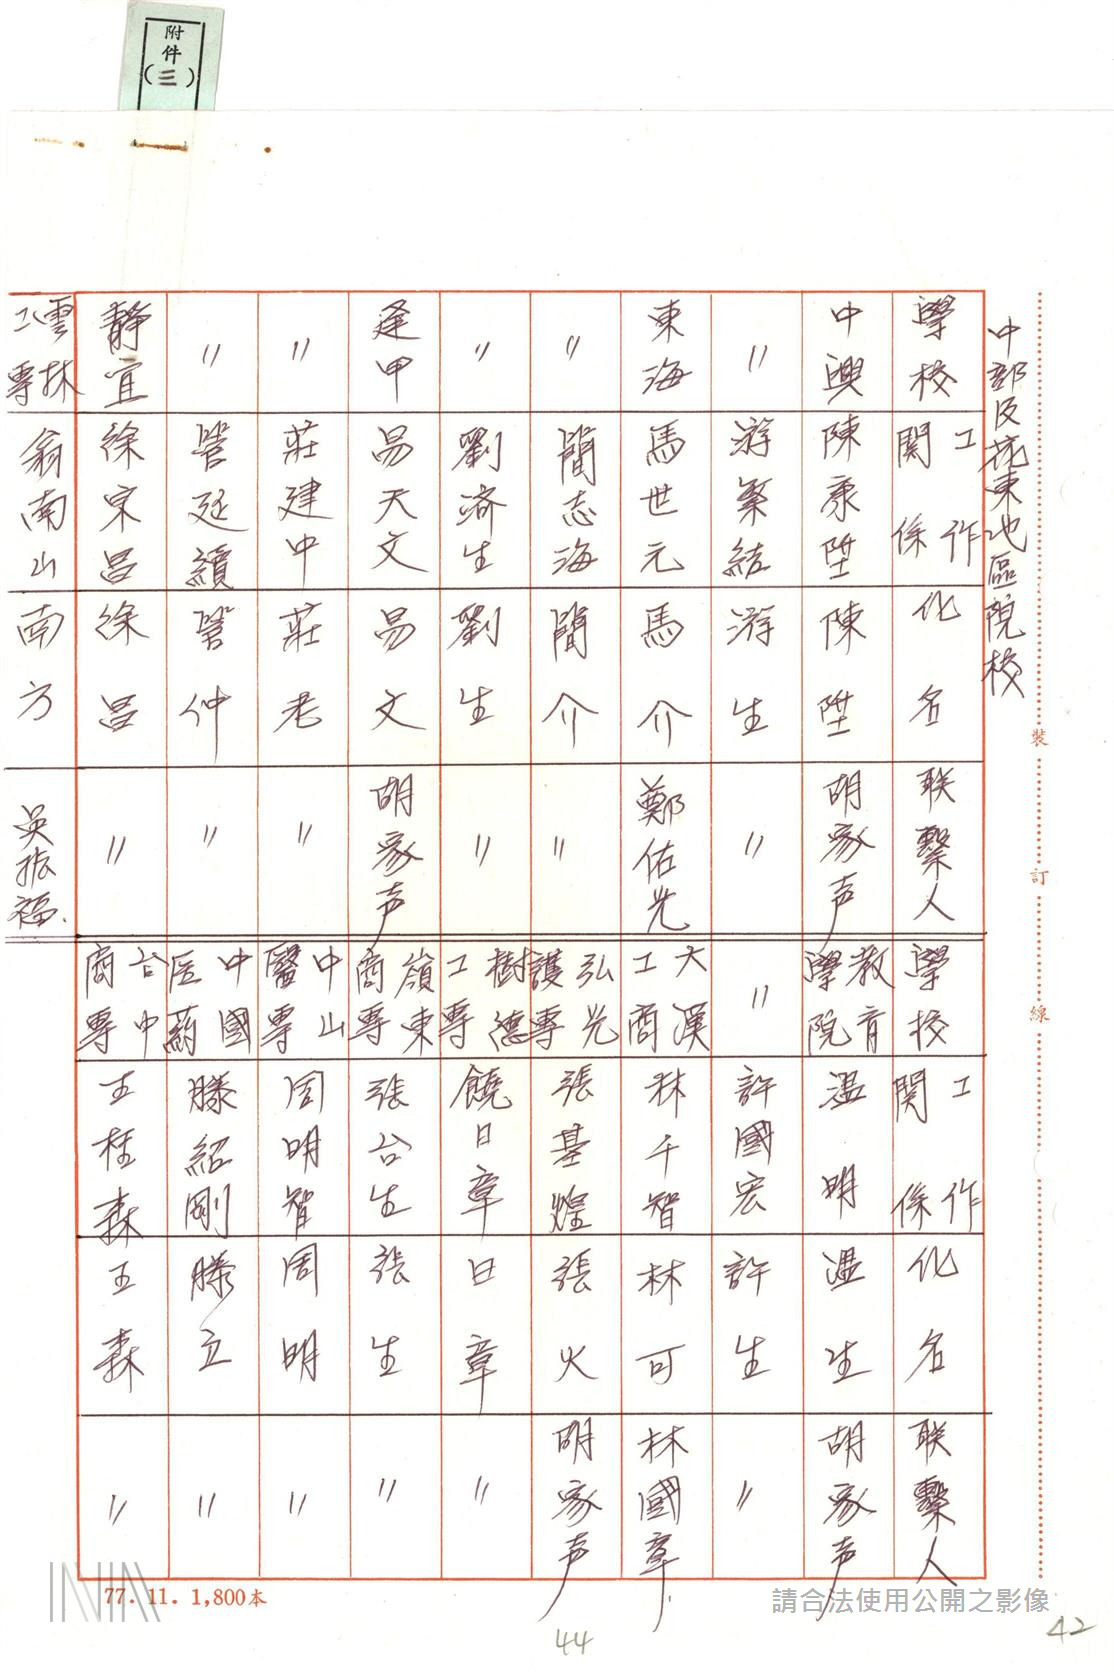 附件(三)
中部及花東地區院校
學校 工作關係 化名 聯繫人
中興 陳秉陞 陳陞 胡家声
〃 游繁結 游生 〃
東海 馬世元 馬介 鄭佑光
〃 簡志海 簡介 〃
〃 劉济生 劉生 〃
逢甲 易天文 易文 胡家声
〃 莊建中 莊老 〃
〃 管延續 管仲 〃
靜宜 徐宋昌 徐昌 〃
雲林工專 翁南山 南方 吳振福.
學校 工作關係 化名 联繫人
教育學院 温明 温生 胡家声
〃 許國宏 許生 〃
大漢工商 林千智 林可 林國章
弘光護專 張基煌 張火 胡家声
樹德工專 饒日章 日章 〃
嶺東商專 張台生 張生 〃
中山醫專 周明智 周明 〃
中國医葯 滕紹剛 滕立 〃
台中商專 王桂森 王森 〃
裝
訂
線
77.11.1,800本
請合法使用公開之影像
44
42